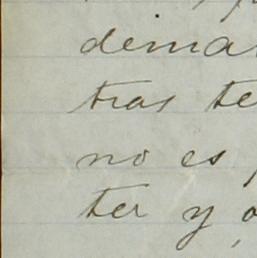 dema
tras te
no es
ter y